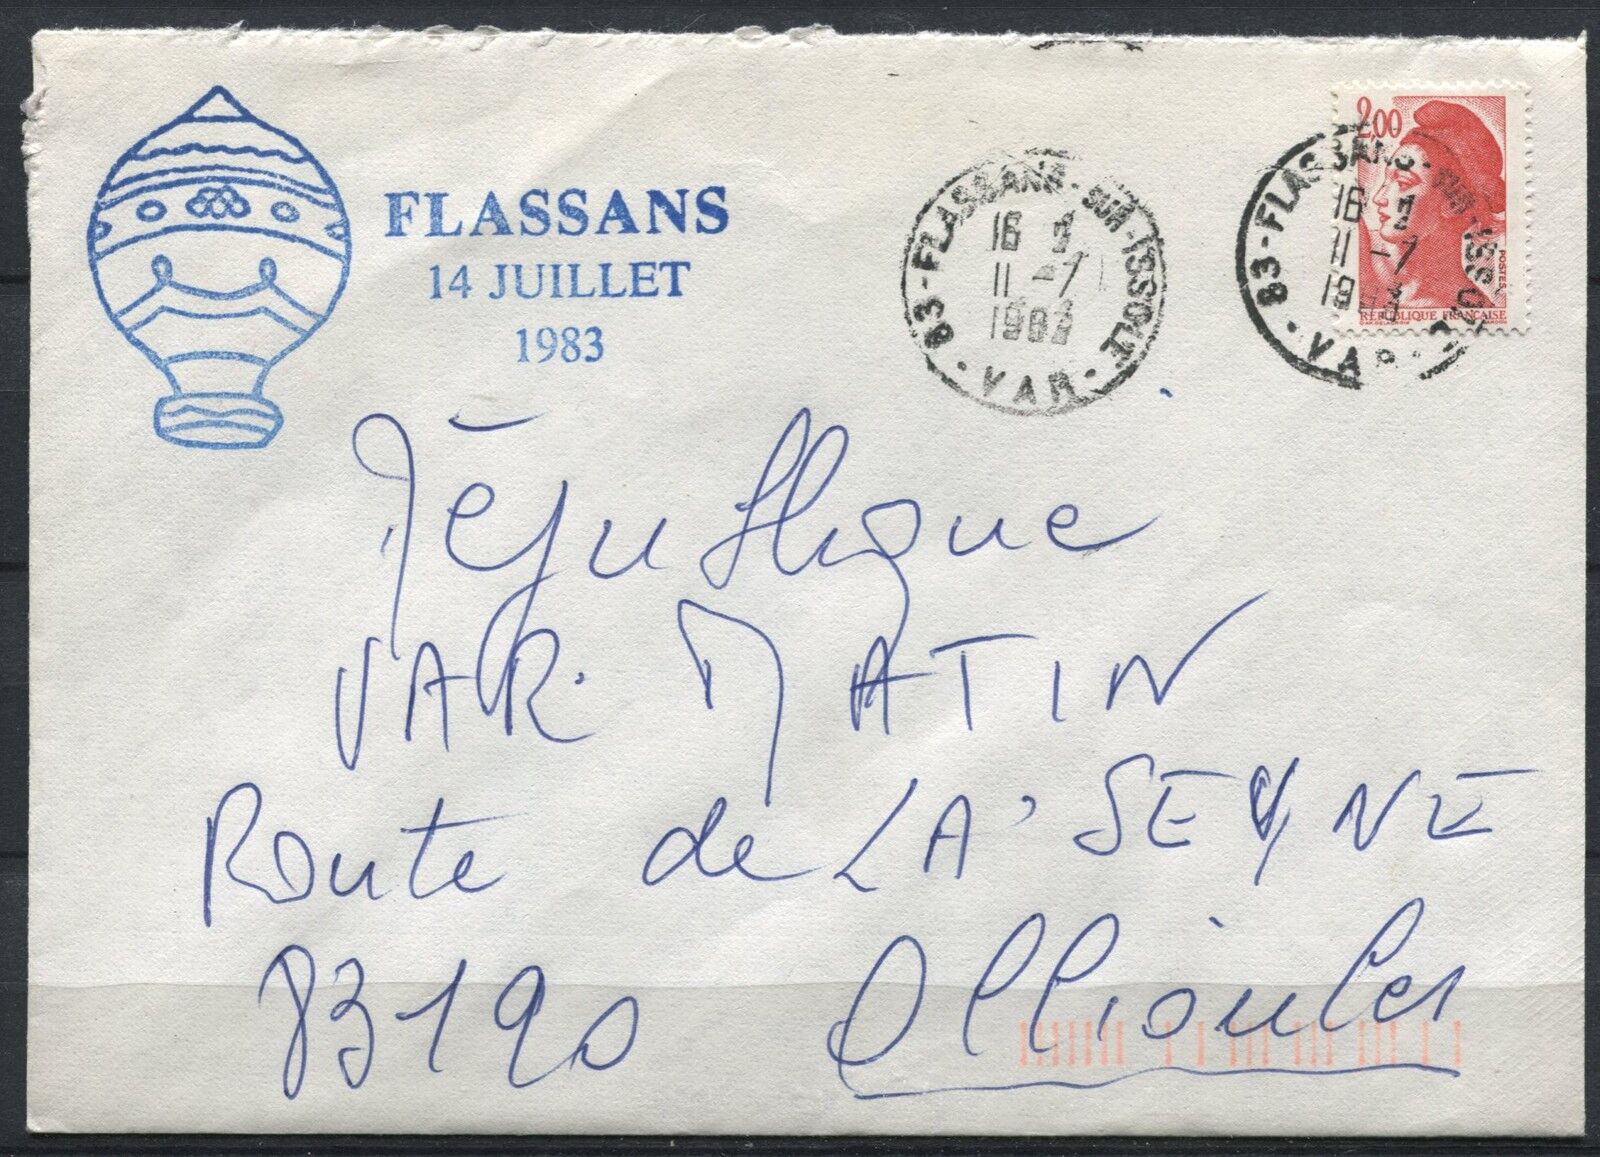 FLASSANS
14 JUILLET
1983
83-FLASSANS-SUR-ISSOLE
16 H
11 -7
1983
·VAR·
83-FLASSANS-SUR-ISSOLE
16 H
11 -7
1983
·VAR·
2,00
POSTES
RÉPUBLIQUE FRANÇAISE
République
VAR. MATIN
Route de LA SEYNE
83190 Ollioules